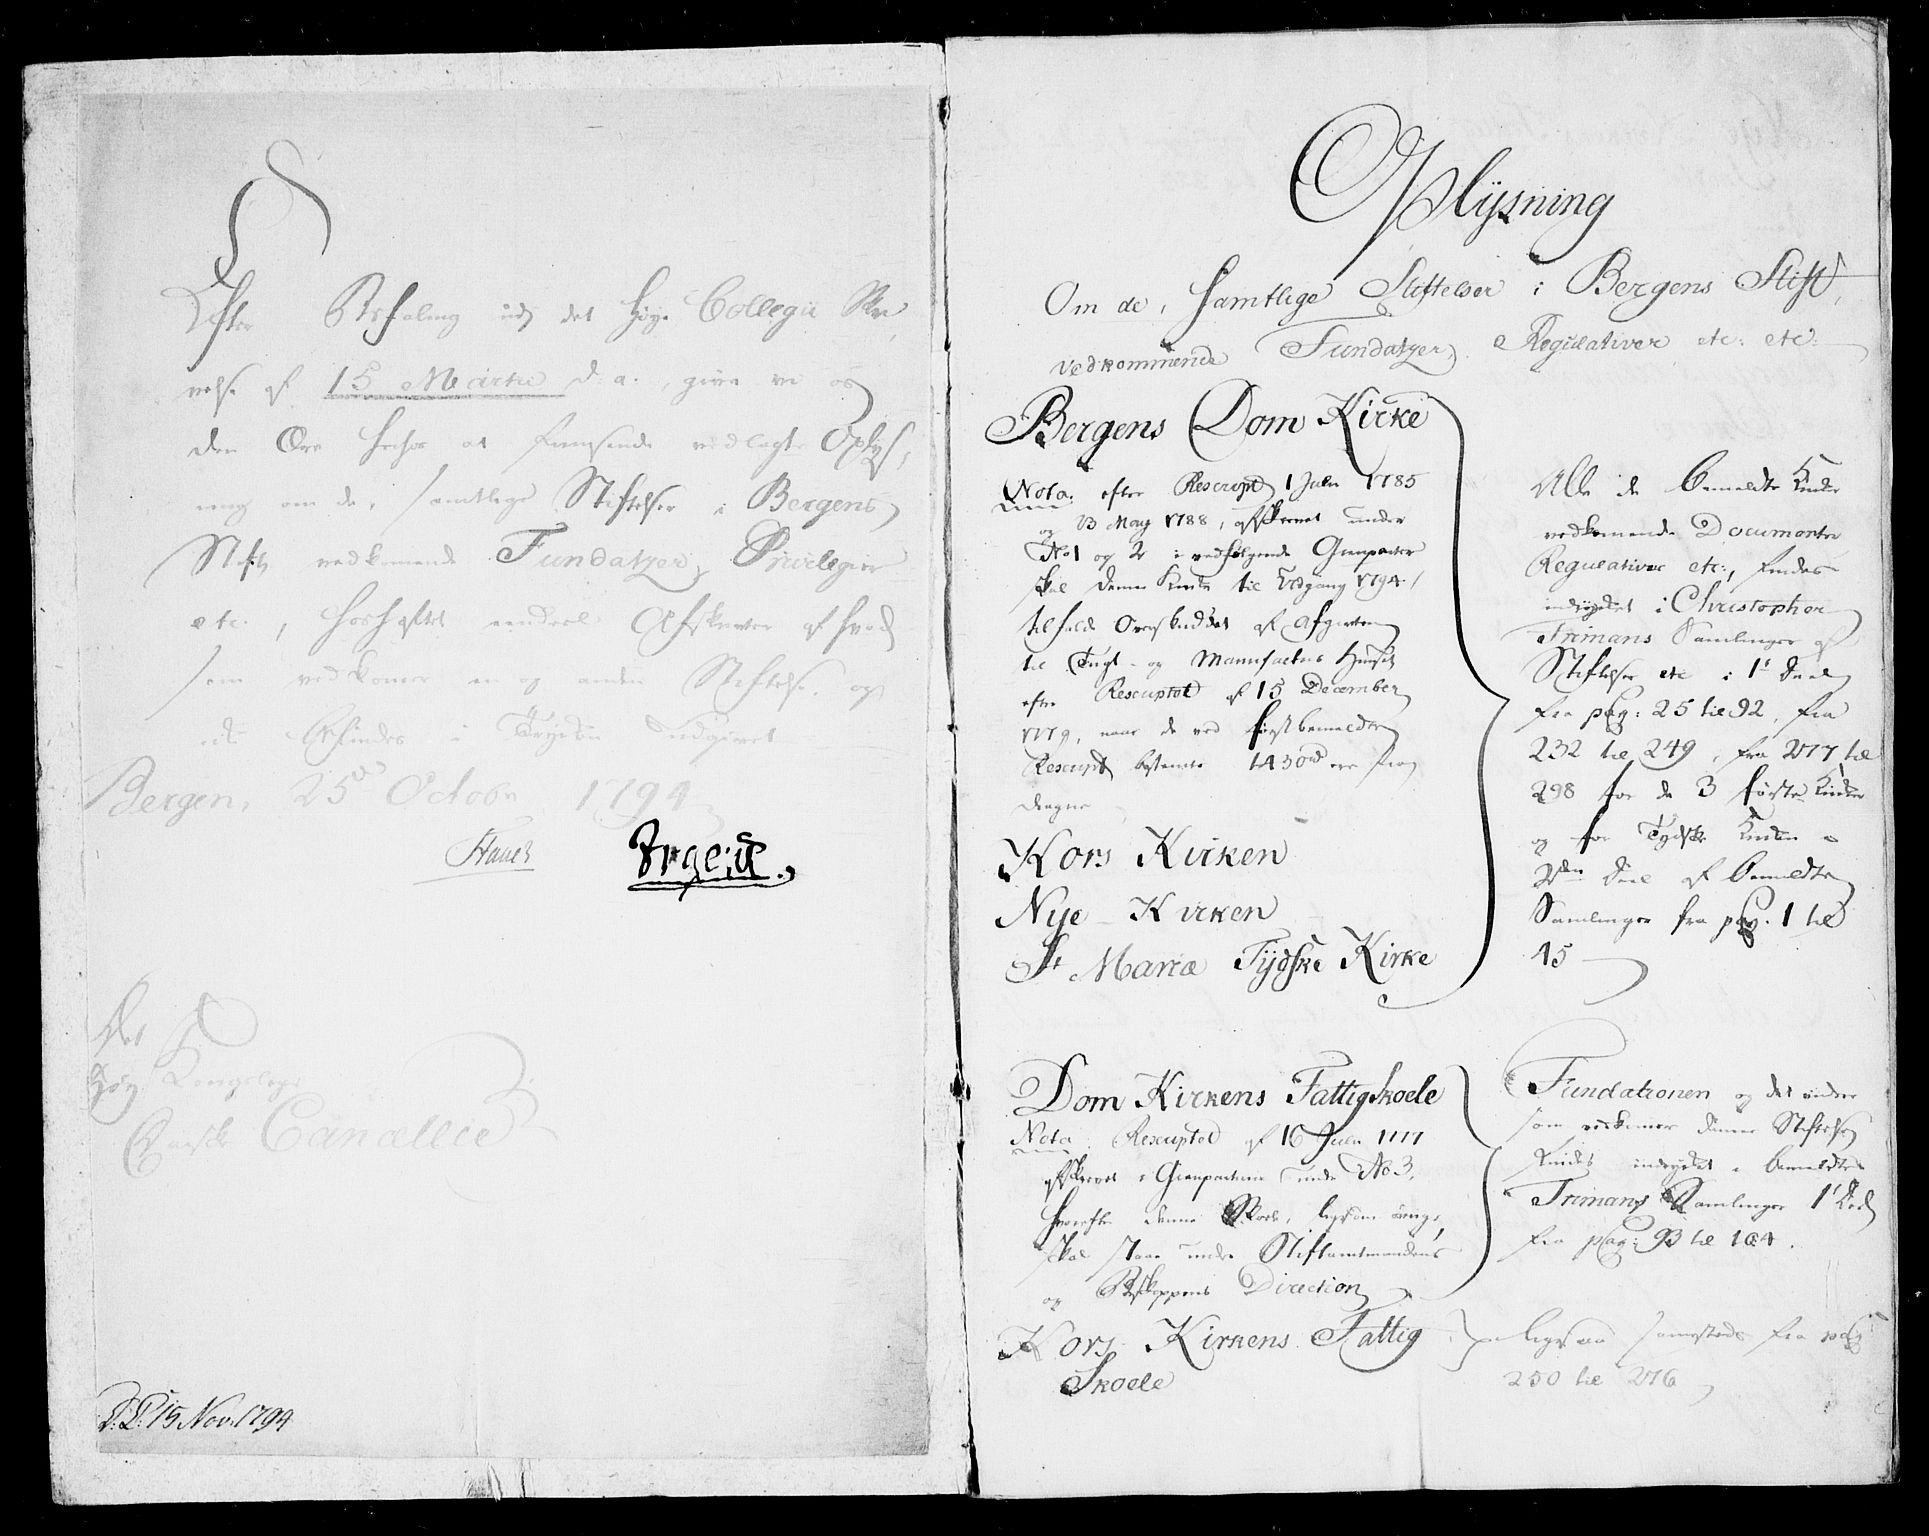 Efter Befaling udj det Høye Collegii Skri,
velse af 15 Martii d: a:, give vi os
den Ære herhos at fremsende vedlagte Oplys,
ning om de, samtlige Stiftelser i Bergens
Stift vedkommende Fundatzer, Privilegier
etc:, hoshæftet endeel Afskrevter af hvad
som vedkomer en og anden Stiftelse, og
ei befindes i Trykken udgivet
Bergen, 25de Octobr 1794
Det
Høy Kongelige
Danske Cancellie
P: L: 15 Nov: 1794
Oplysning
Om de, samtlige Stiftelser i Bergens Stift,
vedkommende Fundatzer, Regulativer etc: etc:
Bergens Dom Kirke
Nota: efter Rescript 1 Julii 1785
og 23 May 1788, afskrevet under
No 1 og 2 i vedfølgende Gienparter
skal denne Kirke til Udgang 1794,
tilfalde Overskuddet af Afgivten
til Tugt- og Manufactur Huuset
efter Rescriptet af 15 December
1779, naar de ved førstbemeldte
Rescript bestemte 1430 rd ere fra
dragne
Kors Kirken
Nye Kirken
St Mariæ Tydske Kirke
Alle de bemeldte Kirker
vedkomende Documenter
Regulativer etc:, findes
indrykket i Christopher
Trimans Samlinger af
Stiftelser etc i 1te Deel
fra pag: 25 til 92, fra
232 til 249, fra 277 til
298 for de 3 første Kirker
og for Tydske Kirken i
2den Deel af bemeldte
Samlinger fra pag. 1 til
45
Dom Kirkens Fattig Skoele
Nota Rescriptet af 16 Julii 1777
afskrevet i Gienparterne under No 3.
hvorefter denne Skole, ligesom øvrige,
skal staae under Stiftamtmandens
og Biskoppens Direction
Fundationen og det videre
som vedkomer denne Stiftelse
findes indrykket i bemeldte
Trimans Samlinger 1te Deel
fra pag: 93 til 104.
Kors Kirkens Fattig
Skoele
ligesaa samesteds fra pag
250 til 276